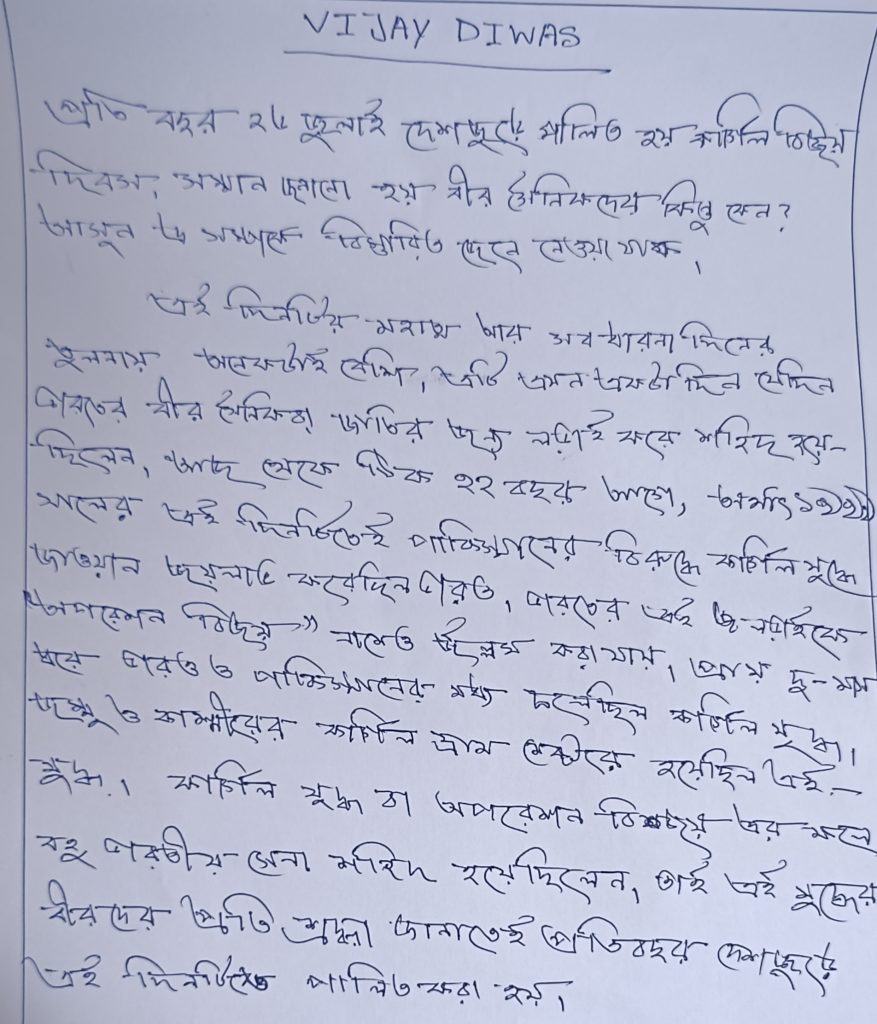 VIJAY DIWAS
প্রতি বছর ২৬ জুলাই দেশজুড়ে পালিত হয় কার্গিল বিজয়
দিবস, সম্মান জানানো হয় বীর সৈনিকদের কিন্তু কেন?
আসুন এ সম্পর্কে বিস্তারিত জেনে নেওয়া যাক,
এই দিনটির মহাত্ম আর সব ধারনা দিনের
তুলনায় অনেকটাই বেশি, এটি এমন একটা দিন যেদিন
ভারতের বীর সৈনিকরা জাতির জন্য লড়াই করে শহিদ হয়ে-
ছিলেন, আজ থেকে ঠিক ২২ বছর আগে, অর্থাৎ ১৯৯৯
সালের এই দিনটিতেই পাকিস্তানের বিরুদ্ধে কার্গিল যুদ্ধে
জাওয়ান জয়লাভ করেছিল ভারত, ভারতের এই লড়াইকে
"অপারেশন বিজয়" নামেও উল্লেখ করা যায়, প্রায় দু-মাস
ধরে ভারত ও পাকিস্তানের মধ্যে চলেছিল কার্গিল যুদ্ধ।
জম্মু ও কাশ্মীরের কার্গিল দ্রাস সেক্টরে হয়েছিল এই-
যুদ্ধ। কার্গিল যুদ্ধ বা অপরেশন বিজয় এর ফলে
বহু ভারতীয় সেনা শহিদ হয়েছিলেন, তাই এই যুদ্ধের
বীরদের প্রতি শ্রদ্ধা জানাতেই প্রতিবছর দেশজুড়ে
এই দিনটিকে পালিত করা হয়,